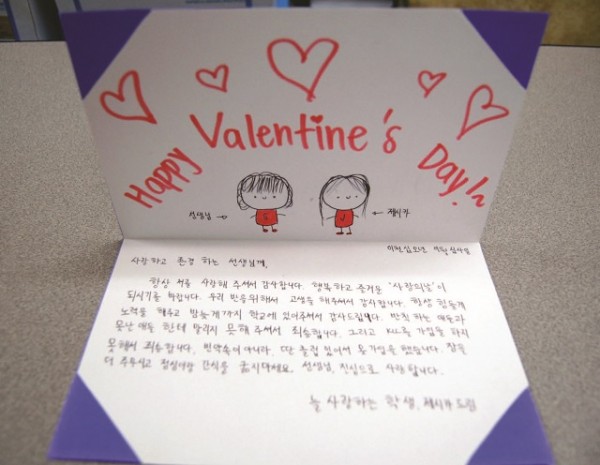 Happy Valentine's Day!
선생님 →
← 제시카
이천십오년 이월 십사일
사랑하고 존경 하는 선생님께,
항상 저를 사랑해 주셔서 감사합니다. 행복하고 즐거운 '사랑의날'이
되시기를 바랍니다. 우리 반을위해서 고생을 해주셔서 감사합니다. 항상 힘들게
노력을 해주고 밤늦게까지 학교에 있어주셔서 감사드립니다. 반칙 하는 애들과
못난 애들 한테 말리지 못해 주셔서 죄송합니다. 그리고 KLC를 가입을 하지
못해서 죄송합니다. 변약속이 아니라, 딴 클럽 있어서 못가입을 했습니다. 잠을
더 주무시고 점심이랑 간식을 굶지마세요. 선생님, 진심으로 사랑 합니다.
늘 사랑하는 학생, 제시카 드림